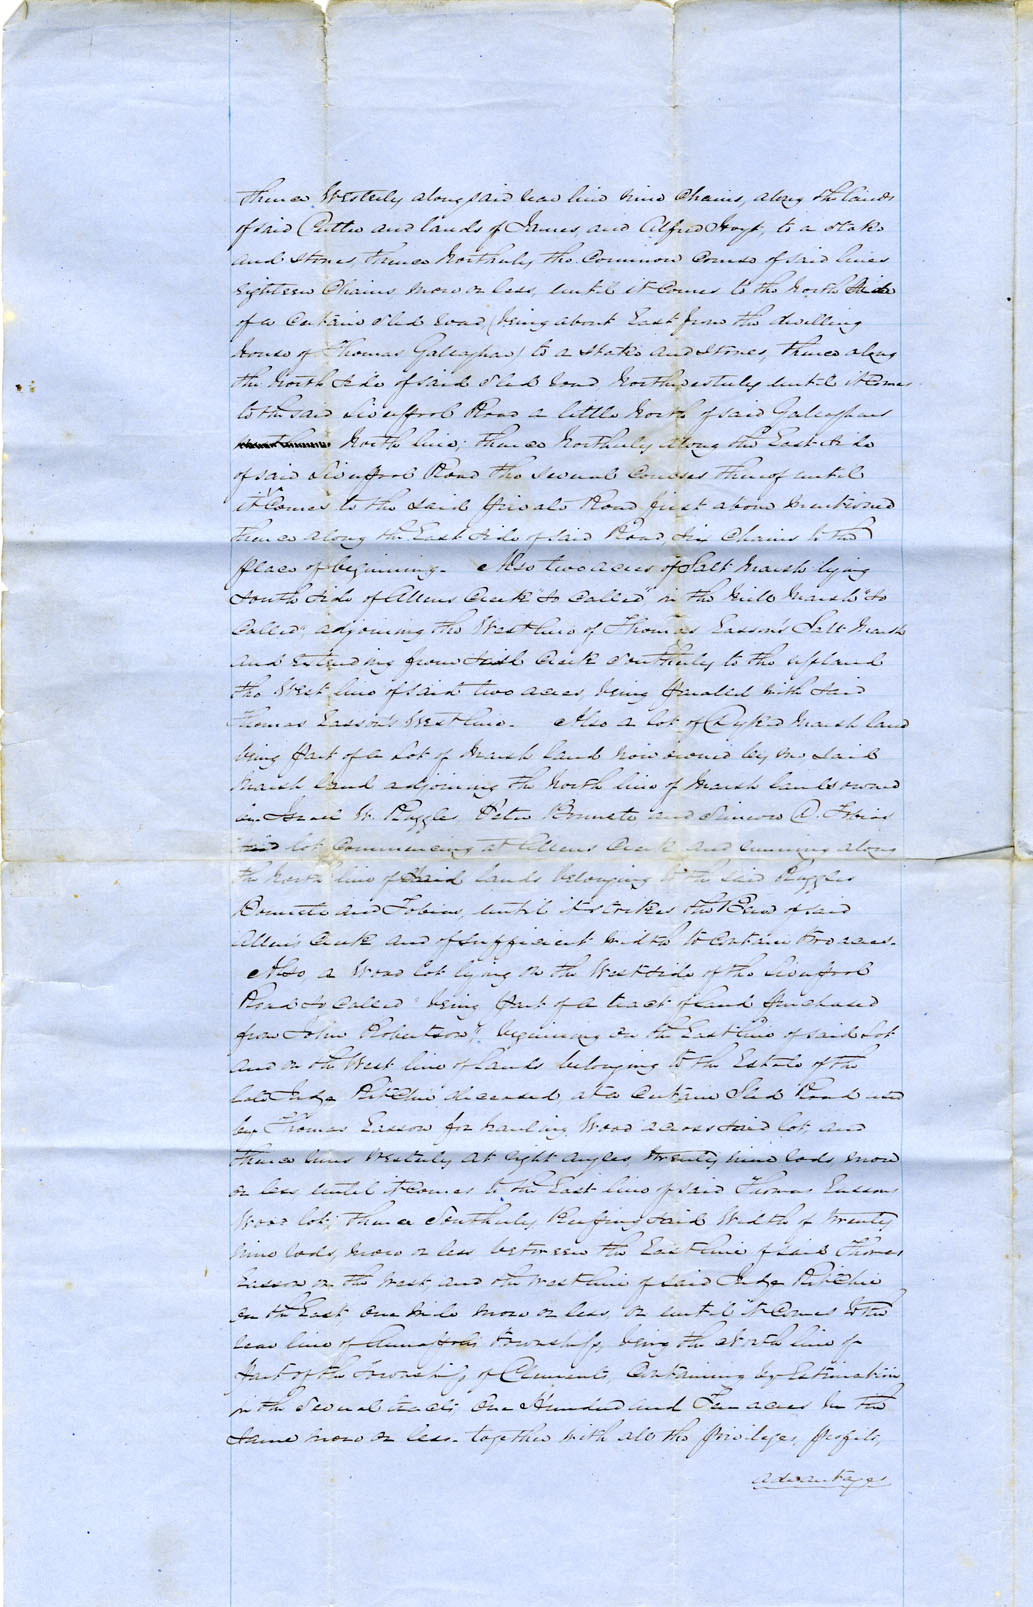 thence Westerly along said rear line nine Chains, along the lands
of said Cutter and lands of James, and Alfred Hoyt, to a Stake
and Stones, thence Northerly the Common Course of said lines
eighteen Chains more or less, until it comes to the North Side
of a Certain Sled road, (being about East from the dwelling
House of Thomas Galeaghar) to a Stake and Stones, thence along
the North Side of said Sled road Northwesterly until it comes
to the said Liverpool Road a little North of said Galeaghars
North line; thence Northerly along the East Side
of said Liverpool Road the Several Courses thereof until
it Comes to the said private Road first above mentioned
thence along the East Side of said Road Six Chains to the
place of beginning. Also two acres of Salt Marsh lying
South Side of Allens Creek "So Called" in the Hill Marsh "So
Called", adjoining the West line of Thomas Easson's Salt Marsh
and Extending from said Creek Southerly to the upland
the West line of said two acres being paralel with said
Thomas Easson's West line. Also a lot of Dyked Marsh land
being part of a Lot of Marsh land now owned by me said
Marsh land adjoining the North line of Marsh lands owned
by Israel W. Ruggles, Peter Bonnette and Simeon D. Tobias
said lot Commencing at Allens Creek and running along
the North line of said lands belonging to the said Ruggles
Bonnette and Tobias, until it strikes the Bend of said
Allen's Creek and of sufficient width to Contain two acres.
Also a Wood lot lying on the West side of the Liverpool
Road So Called "being part of a tract of land purchased
from John Robertson", beginning on the East line of said Lot
and on the West line of lands belonging to the Estate of the
late Judge Ritchie deceased at a Certain Sled Road used
by Thomas Easson for hauling Wood across said lot, and
thence runs Westerly at right angles, twenty nine rods, more
or less until it comes to the East line of said Thomas Eassons
Wood lot; thence Southerly keeping said Width of twenty
nine rods, more or less between the East line of said Thomas
Easson on the West and the West line of said Judge Ritchie
on the East one mile more or less, or until it Comes to the
rear line of Annapolis township, being the North line of
part of the Township of Clements, Containing by Estimation
in the Several tracts One Hundred and Ten acres be the
Same more or less. together with all the privileges, profits,
advantages